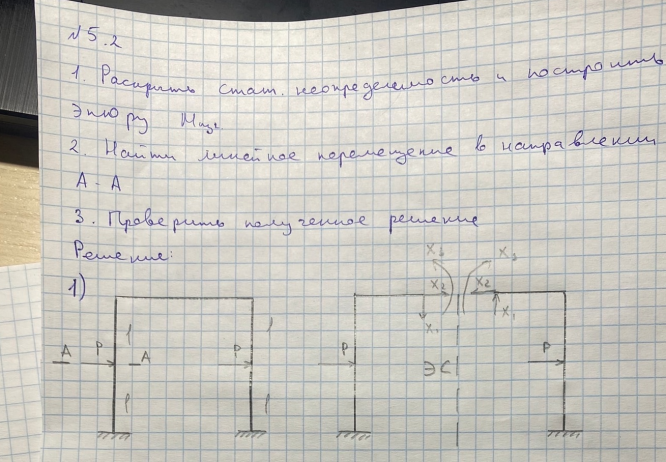 №5.2
1. Раскрыть стат. неопределимость и построить
Эпюру Mизг.
2. Найти линейное перемещение в направлении
А-А
3. Проверить полученное решение
Решение:
1)
X3 X3
X2 X2
X1 X1
l l
A P A P P ЭС P
l l